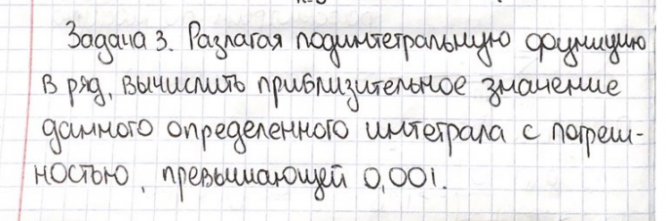 Задача 3. Разлагая подинтегральную функцию
в ряд, вычислить приблизительное значение
данного определенного интеграла с погреш-
ностью, превышающей 0,001.